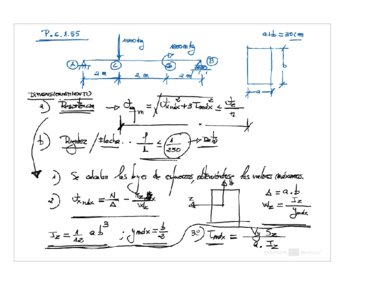 P.6.1.55
a·b = 30cm
A C B
2m 2m 2m
b
a
DIMENSIONAMIENTO
a) Resistencia → σ = √σxmáx² + 3 τmáx² ≤ σe/n
b) Rigidez / Flecha . . f/L ≤ 1/250 → Dato
1) Se calculan las leyes de esfuerzos, obteniéndose los valores máximos.
2) σxmáx = N/A - /Wz
A = a·b
Wz = Iz/ymáx
Iz = 1/12 a b³ ; ymáx = b/2
3º) τmáx = Vy Sz / a. Iz